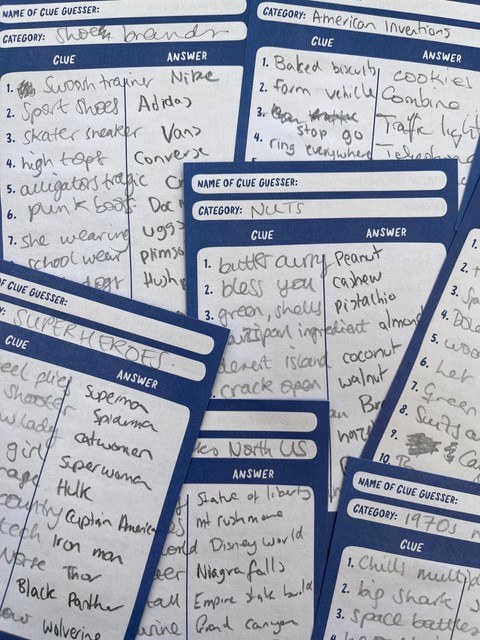 NAME OF CLUE GUESSER:
CATEGORY: Shoe brands
CLUE ANSWER
1. Swosh trainer Nike
2. Sport shoes Adidas
3. skater sneaker Vans
4. high tops Converse
5. alligators
6. punk boots Doc
7. she wearing ugg
school wear plimso
Hush
NAME OF CLUE GUESSER:
CATEGORY: American Inventions
CLUE ANSWER
1. Baked biscuits cookies
2. farm vehicle Combine
3. stop go Traffic light
4. ring everywhere
NAME OF CLUE GUESSER:
CATEGORY: NUTS
CLUE ANSWER
1. butter Peanut
2. bless you cashew
3. green, shells pistachio
ingredient almond
desert island coconut
crack open walnut
Br
GUESSER:
SUPERHEROES
CLUE ANSWER
Superma
shooter Spiderma
lady catwoman
girl Superwoma
Hulk
country Captain America
tech Iron man
Norse Thor
Black Panther
wolverine
North US
ANSWER
Statue of liberty
mt rushmore
world Disney world
Niagra falls
tall Empire state build
Grand canyon
1.
2.
3.
4.
5. woo
6. Her
7. Green
8.
9. Ca
10.
NAME OF CLUE GUESSER:
CATEGORY: 1970s
CLUE
1. Chills
2. big shark
3. space battles